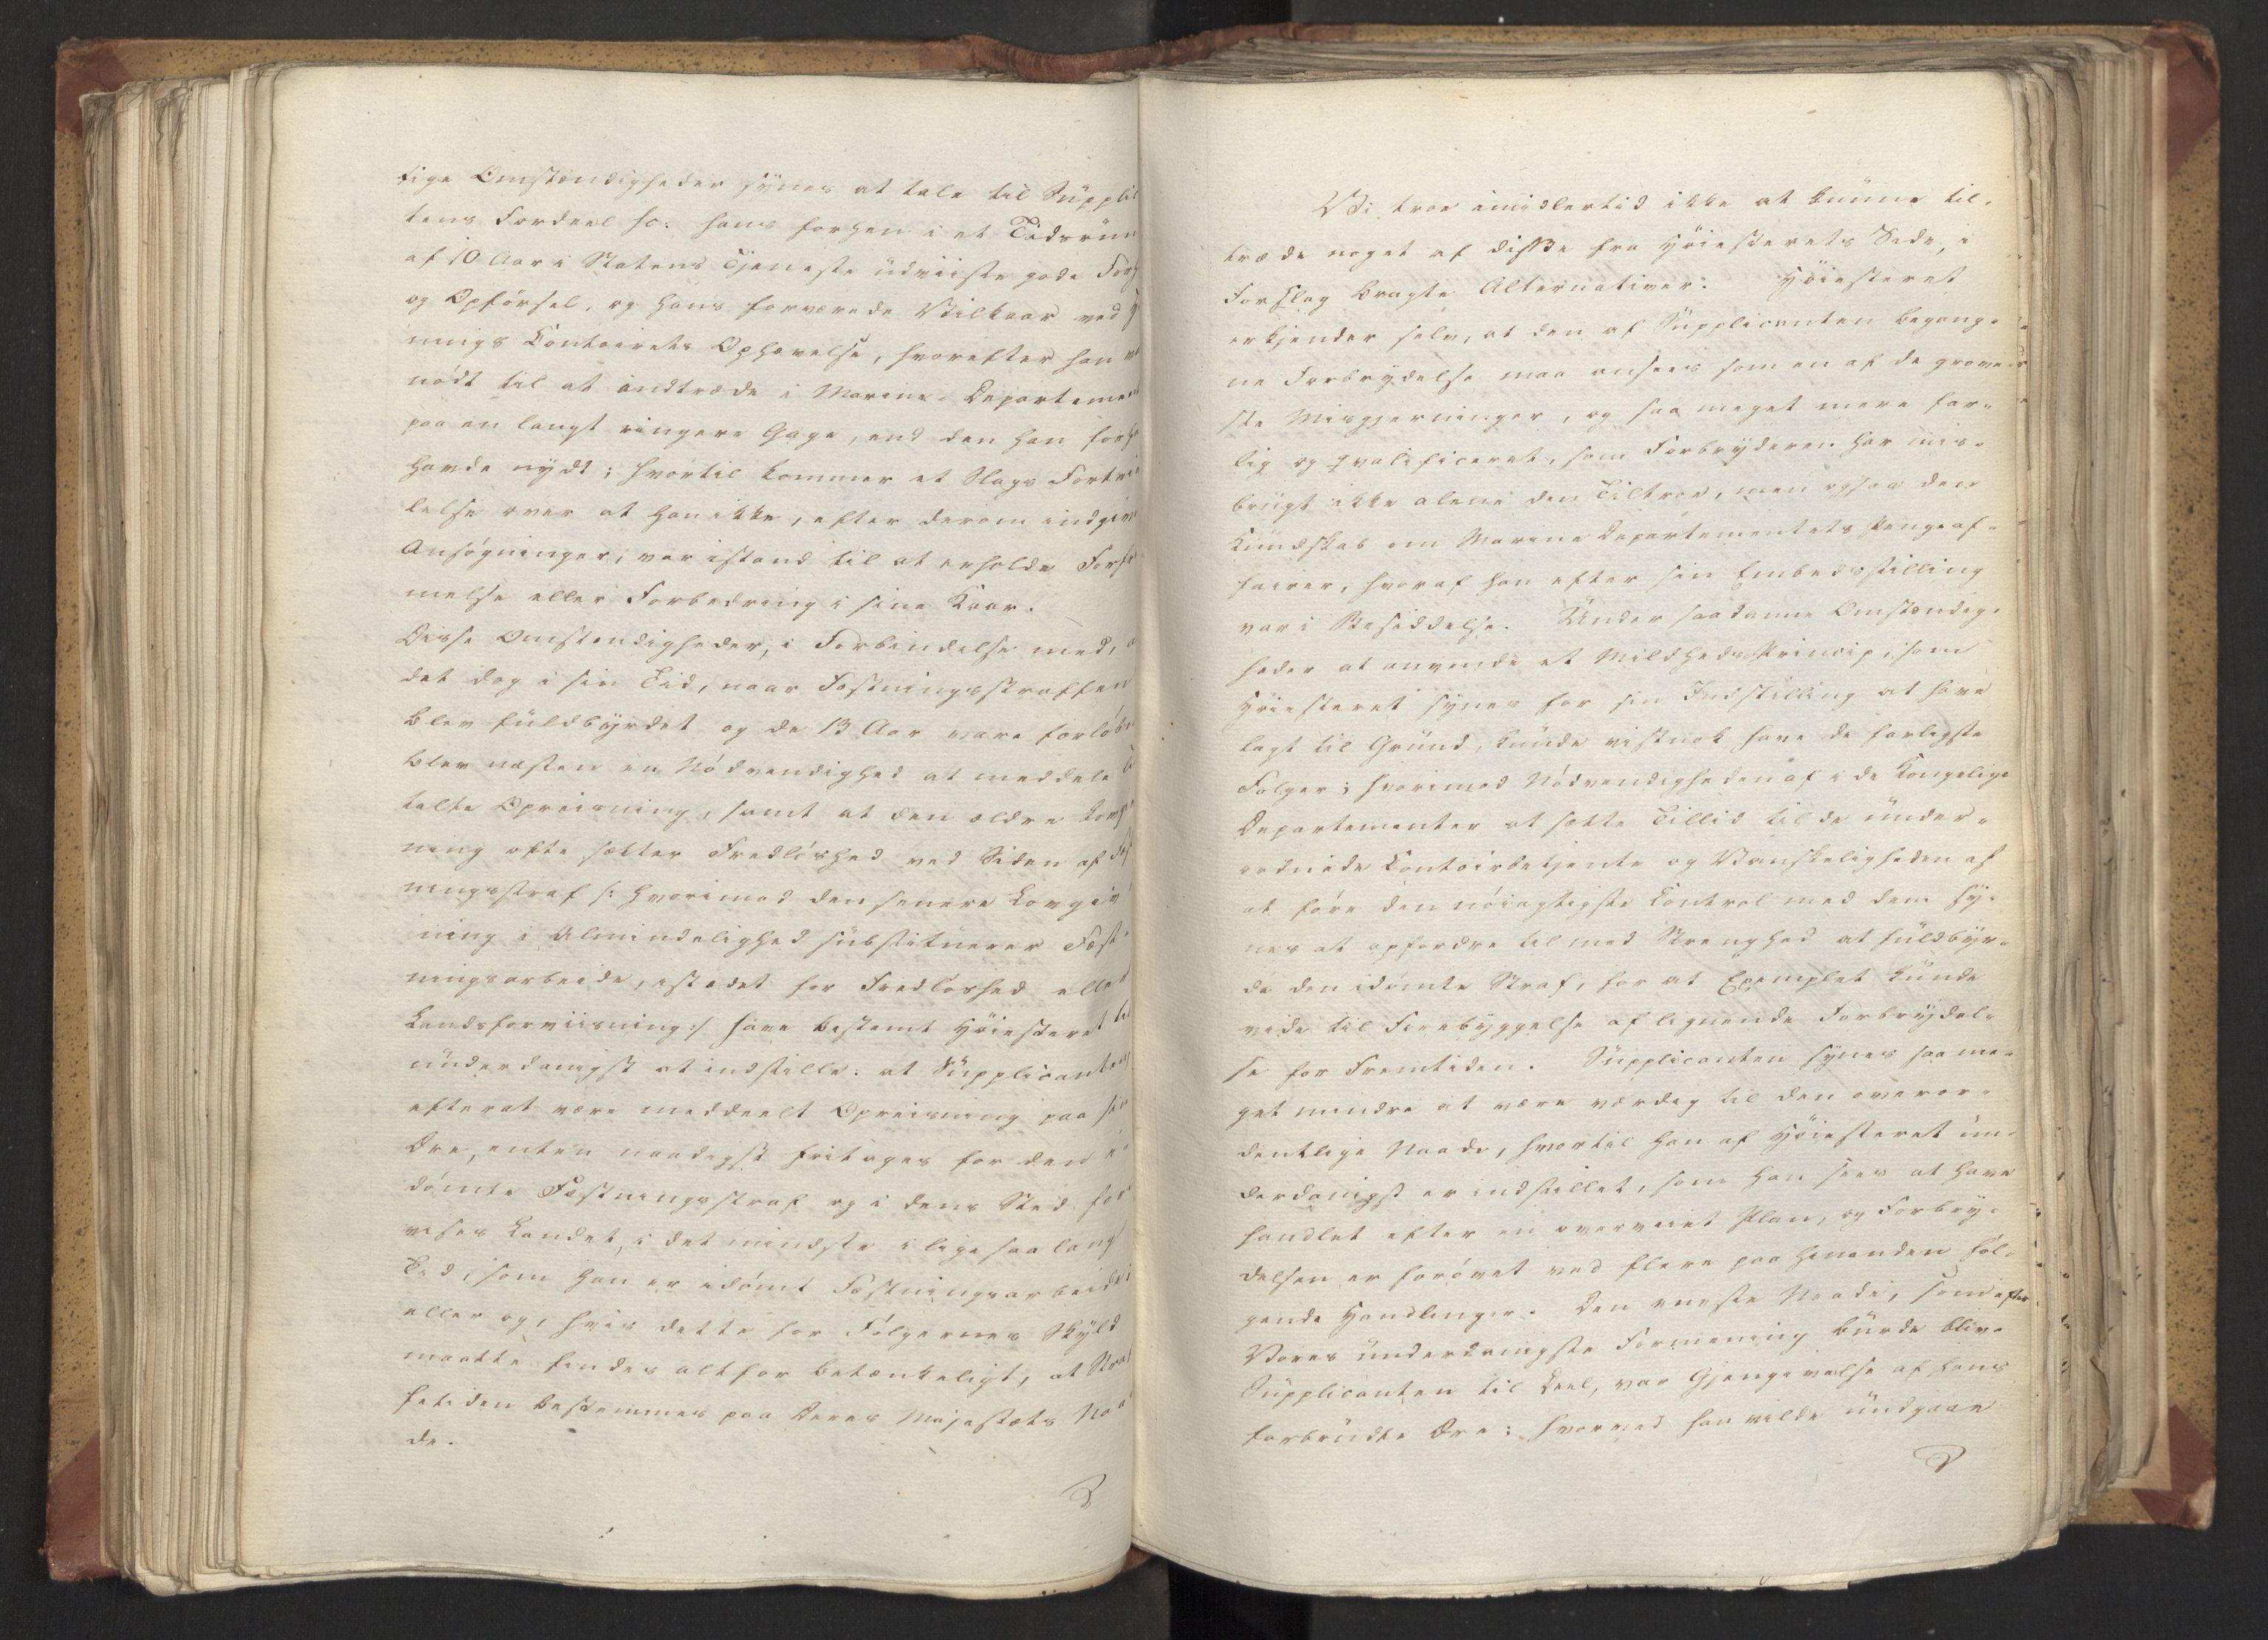 tige Omstændigheder synes at tale til Suppli
tens Fordeel so: hans forhen i et Tidsrum
af 10 Aar i Statens Tjeneste udviiste gode Forh
og Opförsel, og hans forværrede Vilkaar ved
nings Contoirets Ophævelse, hvorefter han
nödt til at indtræde i Marine-Departemen
paa en langt ringere Gage, end den han forhe
havde nydt; hvortil kommer et Slags Fortvi
lelse over at han ikke, efter derom indgivne
Ansögninger, var istand til at erholde Forfr
melse eller Forbedring i sine Kaar.
Disse Omstændigheder, i Forbindelse med,
det dog i sin Tid, naar Fæstningsstraffen
blev fuldbyrdet og de 13 Aar vare forlöbne
blev næsten en Nödvendighed at meddele
talte Opreisning, samt at den ældre Lovg
ning ofte sætter Fredlöshed ved Siden af Fæst
ningsstraf /: hvorimod den senere Lovgiv
ning i Almindelighed substituerer Fæst
ningsarbeide, istedet for Fredlöshed eller
Landsforviisning :/ have bestemt Höiesteret til
underdanigst at indstille: at Supplicanten
efterat være meddeelt Opreisning paa sin
Ære, enten naadigst fritages for den i
dömte Fæstningsstraf og i dens Sted for
vises Landet, i det mindste i lige saa lang
Tid, som han er idömt Fæstningsarbeide;
eller og, hvis dette for Fölgernes Skyld
maatte findes altfor betænkeligt, at Straf
fetiden bestemmes paa Deres Majestæts Naa
de.
Vi troe imidlertid ikke at kunne til-
træde noget af disse fra Höiesterets Side, i
Forslag bragte Alternativer: Höiesteret
erkjender selv, at den af Supplicanten begang-
ne Forbrydelse maa ansees som en af de grove-
ste Misgjerninger, og saa meget mere far-
lig og qvalificeret, som Forbryderen har mis-
brugt ikke alene den Tiltroe, men ogsaa den
Kundskab om Marine Departementets Pengeaf-
fairer, hvoraf han efter sin Embedsstilling
var i Besiddelse. Under saadanne Omstændig-
heder at anvende et Mildheds Princip, som
Höiesteret synes for sin Indstilling at have
lagt til Grund, kunde vistnok have de farligste
Fölger; hvorimod Nödvendigheden af i de Kongelige
Departementer at sætte Tillid til de under-
ordnede Contoirbetjente og Vanskeligheden af
at före den nöiagtigste Control med dem sy-
nes at opfordre til med Strenghed at fuldbyr-
de den idömte Straf, for at Exemplet kunde
virke til Forebyggelse af lignende Forbrydel-
se for Fremtiden. Supplicanten synes saa me-
get mindre at være værdig til den overor-
dentlige Naade, hvortil han af Höiesteret un-
derdanigst er indstillet, som han sees at have
handlet efter en overveiet Plan, og Forbry-
delsen er forövet ved flere paa hinanden föl-
gende Handlinger. Den eneste Naade, som efter
Vores underdanigste Formening burde blive
Supplicanten til Deel, var Gjengivelse af hans
forbrudte Ære; hvorved han vilde undgaae